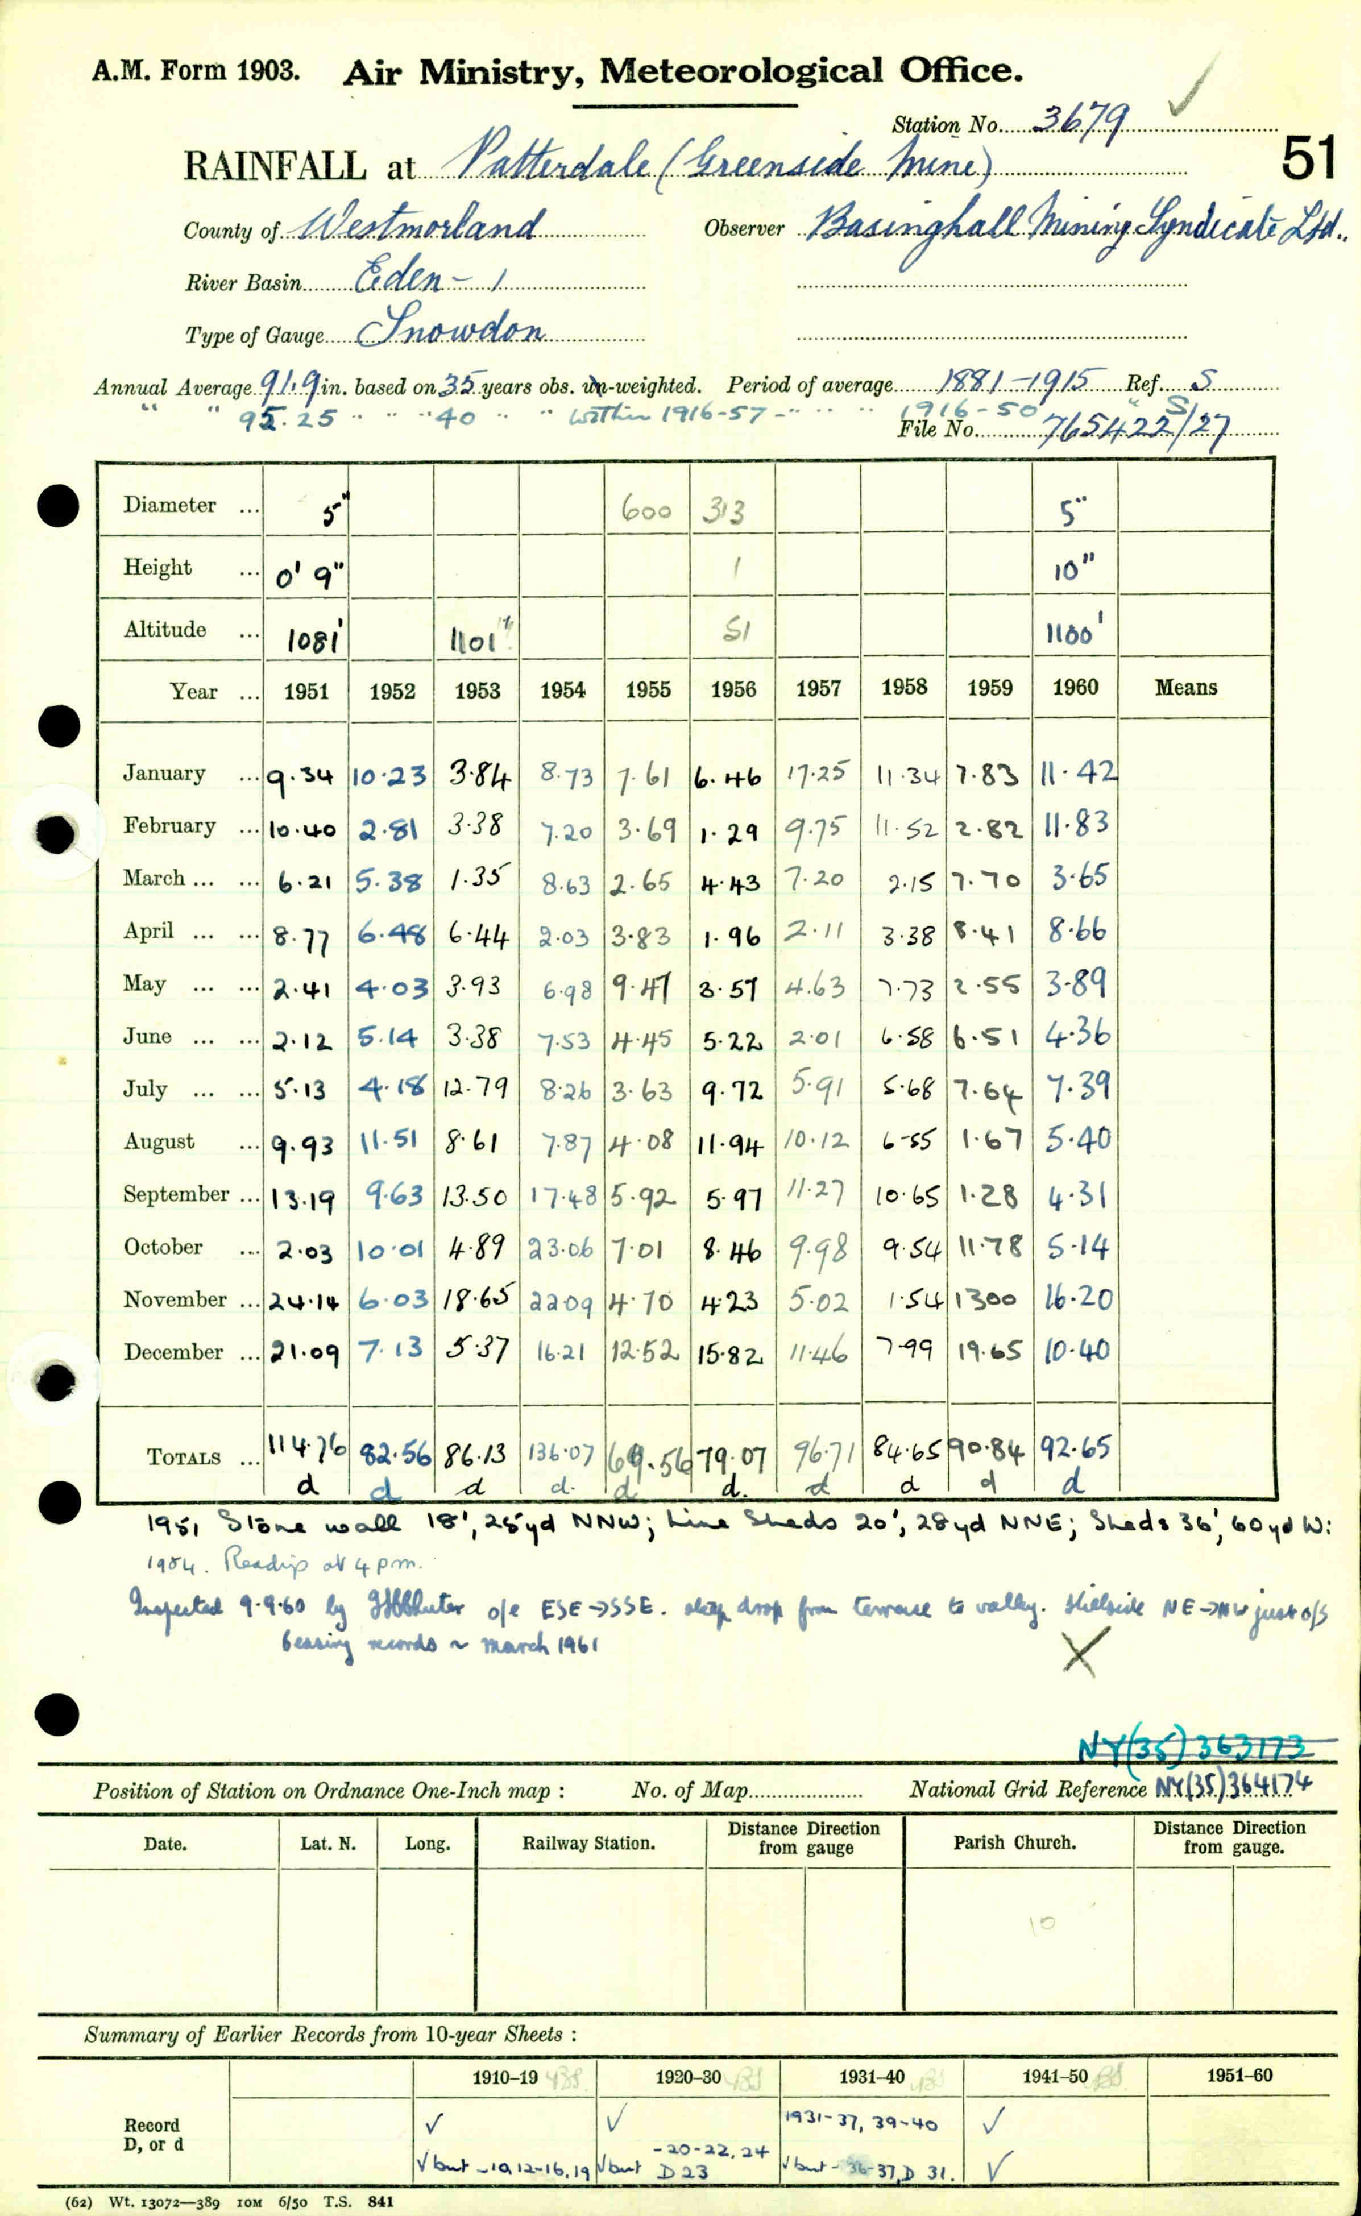 A.M. Form 1903. Air Ministry, Meteorological Office.
Station No. 3679
51
RAINFALL at Patterdale (Greenside Mine)
County of Westmorland Observer Basinghall Mining Syndicate Ltd.
River Basin Eden - 1
Type of Gauge Snowdon
Annual Average 91.9 in. based on 35 years obs. un-weighted. Period of average 1881-1915 Ref. S
" " 95.25 " " " 40 " " within 1916-57 - " " " 1916-50 " S/
File No. 765422/27
Diameter ... 5" 600 313 5"
Height ... 0' 9" 1 10"
Altitude ... 1081' 1101' 51 1100'
Year ... 1951 1952 1953 1954 1955 1956 1957 1958 1959 1960 Means
January ... 9.34 10.23 3.84 8.73 7.61 6.46 17.25 11.34 7.83 11.42
February ... 10.40 2.81 3.38 7.20 3.69 1.29 9.75 11.52 2.82 11.83
March ... ... 6.21 5.38 1.35 8.63 2.65 4.43 7.20 2.15 7.70 3.65
April ... ... 8.77 6.48 6.44 2.03 3.83 1.96 2.11 3.38 8.41 8.66
May ... ... 2.41 4.03 3.93 6.98 9.47 3.57 4.63 7.73 2.55 3.89
June ... ... 2.12 5.14 3.38 7.53 4.45 5.22 2.01 6.58 6.51 4.36
July ... ... 5.13 4.18 12.79 8.26 3.63 9.72 5.91 5.68 7.64 7.39
August ... 9.93 11.51 8.61 7.87 4.08 11.94 10.12 6.55 1.67 5.40
September ... 13.19 9.63 13.50 17.48 5.92 5.97 11.27 10.65 1.28 4.31
October ... 2.03 10.01 4.89 23.06 7.01 8.46 9.98 9.54 11.78 5.14
November ... 24.14 6.03 18.65 22 09 4.70 4.23 5.02 1.54 13 00 16.20
December ... 21.09 7.13 5.37 16.21 12.52 15.82 11.46 7.99 19.65 10.40
TOTALS ... 114.76 82.56 86.13 136.07 69.56 79.07 96.71 84.65 90.84 92.65
d d d d. d d. d d d d
1951 Stone wall 18', 25yd NNW; Lime Sheds 20', 28yd NNE; Sheds 36', 60yd W:
1954. Readings at 4 pm.
Inspected 9.9.60 by o/e ESE→SSE. steep drop from terrace to valley. Hillside NE→NW just o/s
Ceasing records ~ March 1961
X
NY(35)363173
Position of Station on Ordnance One-Inch map : No. of Map National Grid Reference NY(35)364174
Date. Lat. N. Long. Railway Station. Distance from gauge Direction Parish Church. Distance from gauge. Direction
10
Summary of Earlier Records from 10-year Sheets :
1910-19 1920-30 1931-40 1941-50 1951-60
Record ✓ ✓ 1931-37, 39-40 ✓
D, or d ✓but -10,12-16,19 ✓but -20-22, 24 D 23 ✓but -36-37, D 31. ✓
(62) Wt. 13072—389 10M 6/50 T.S. 841